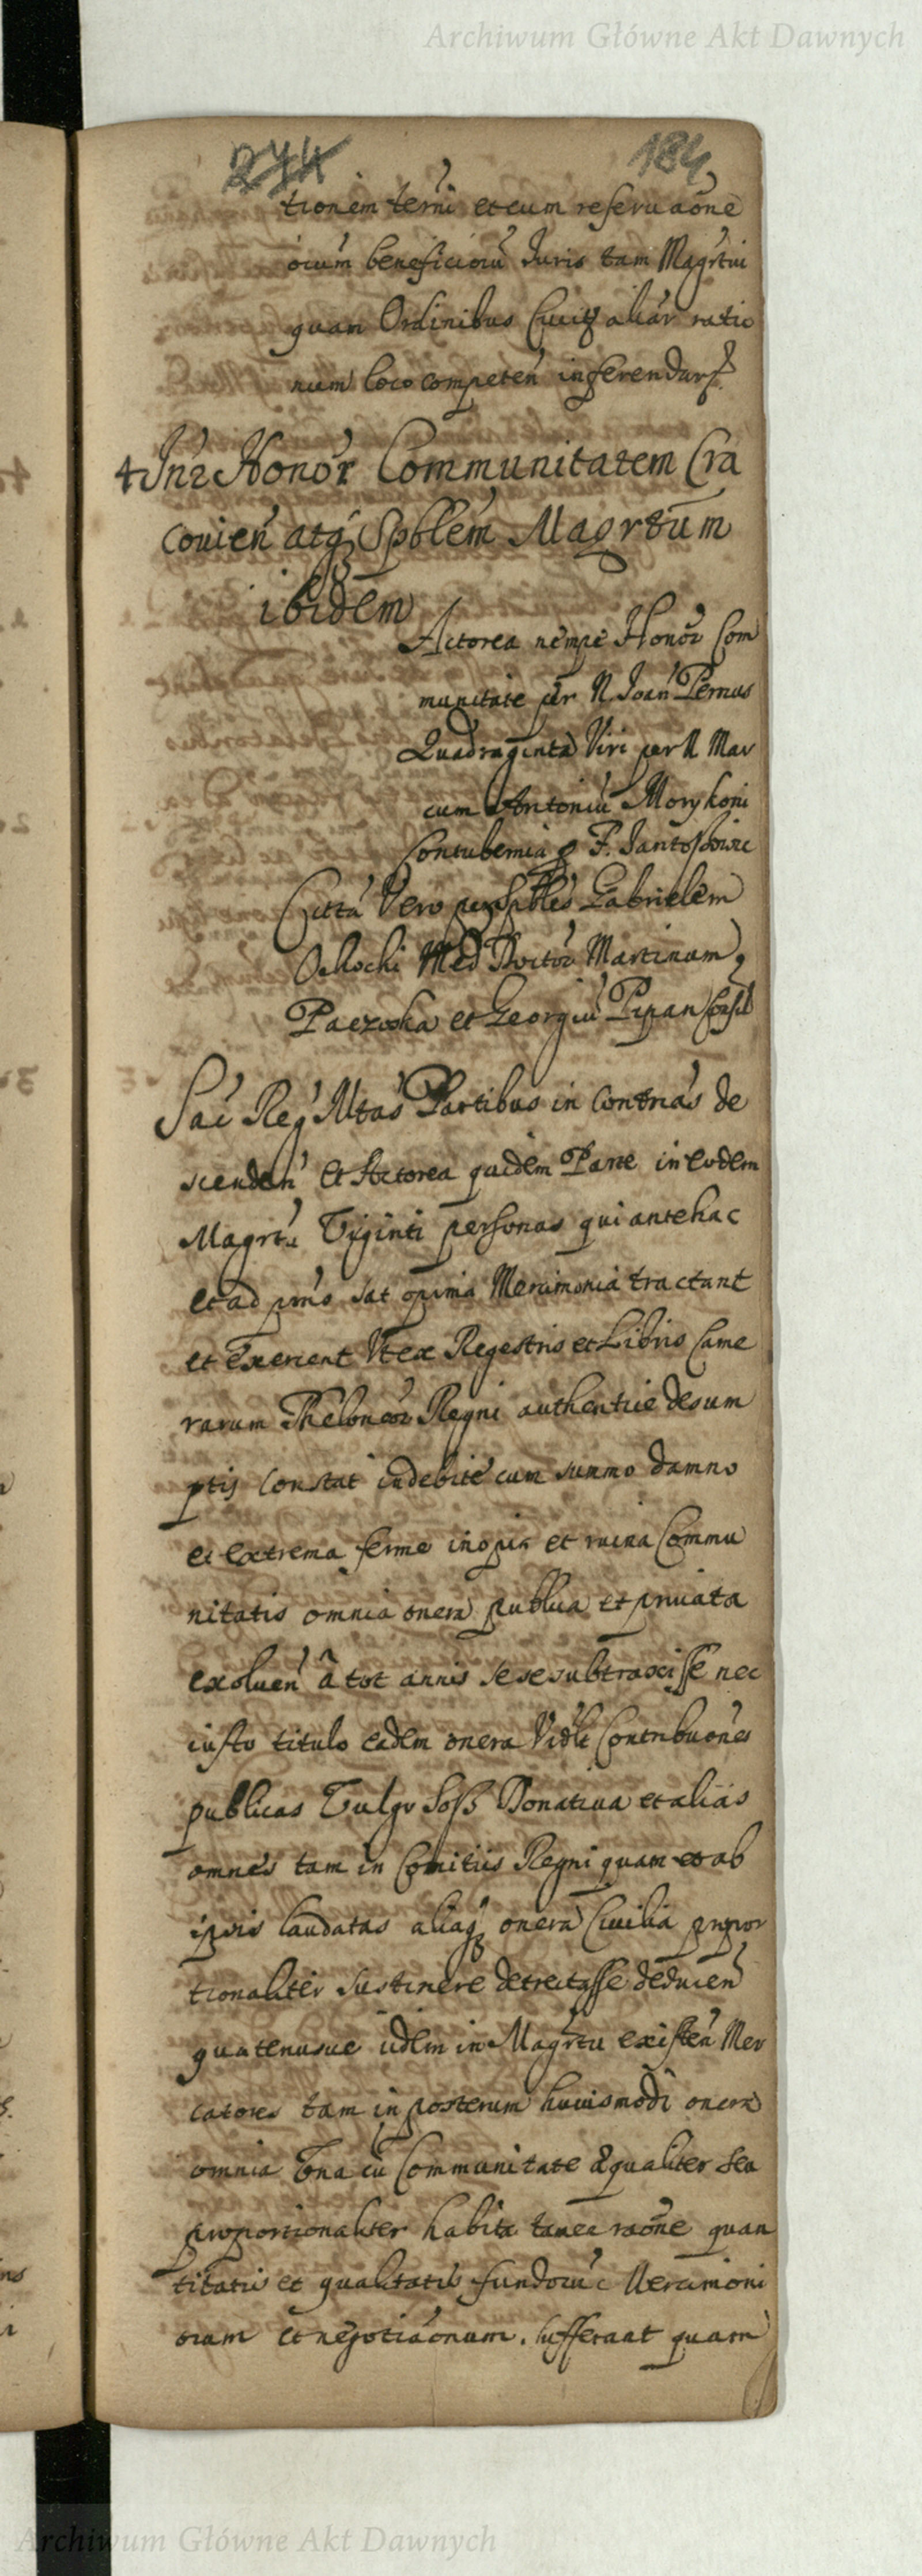 Archiwum Główne Akt Dawnych
274 184
tionem terni et cum reseruaone
oium beneficioru Juris tam Magrtui
quam Ordinibus Ciuitt aliar ratio
num loco competen inferendar
4 Inr Honor Communitatem Cra
couien atq Spblem Magrtum
ibidem
Actorea nempe Honor Com
munitate per N. Joan Pernus
Quadraginta Viri per N Mar
cum Antoniu Morykoni
Contubernia p F. Jantoskowic
Citta Vero per Spbles Gabrielem
Ochocki Med Doctor Martinum
Paczoska et Georgiu Pipan Consil
Sac Reg Mtas Partibus in contrias de
scenden Et Actorea quidem Parte in eodem
Magrtu Viginti personas qui antehac
et ad pns sat opima Mercimonia tractant
et Exercent Vt ex Regestris et Libris Came
rarum Theloneor Regni authentice desum
ptis constat indebite cum summo damno
et extrema ferme inopia et ruina Commu
nitatis omnia onera publica et priuata
exoluen â tot annis sese subtraxisse nec
iusto titulo eadem onera Vidlt Contribuones
publicas Vulgo Soss Donatiua et alias
omnes tam in Comitiis Regni quam et ab
ipsis laudatas aliaq onera Ciuilia propor
tionaliter sustinere detrectasse deducen
quatenusue iidem in Magrtu existen Mer
catores tam in posterum huiusmodi onera
omnia Vna cu Communitate æqualiter seu
proportionaliter habita tanee raone quan
titatis et qualitatis fundoru c Mercimoni
orum et negotiaonum. sufferant quam
Archiwum Główne Akt Dawnych